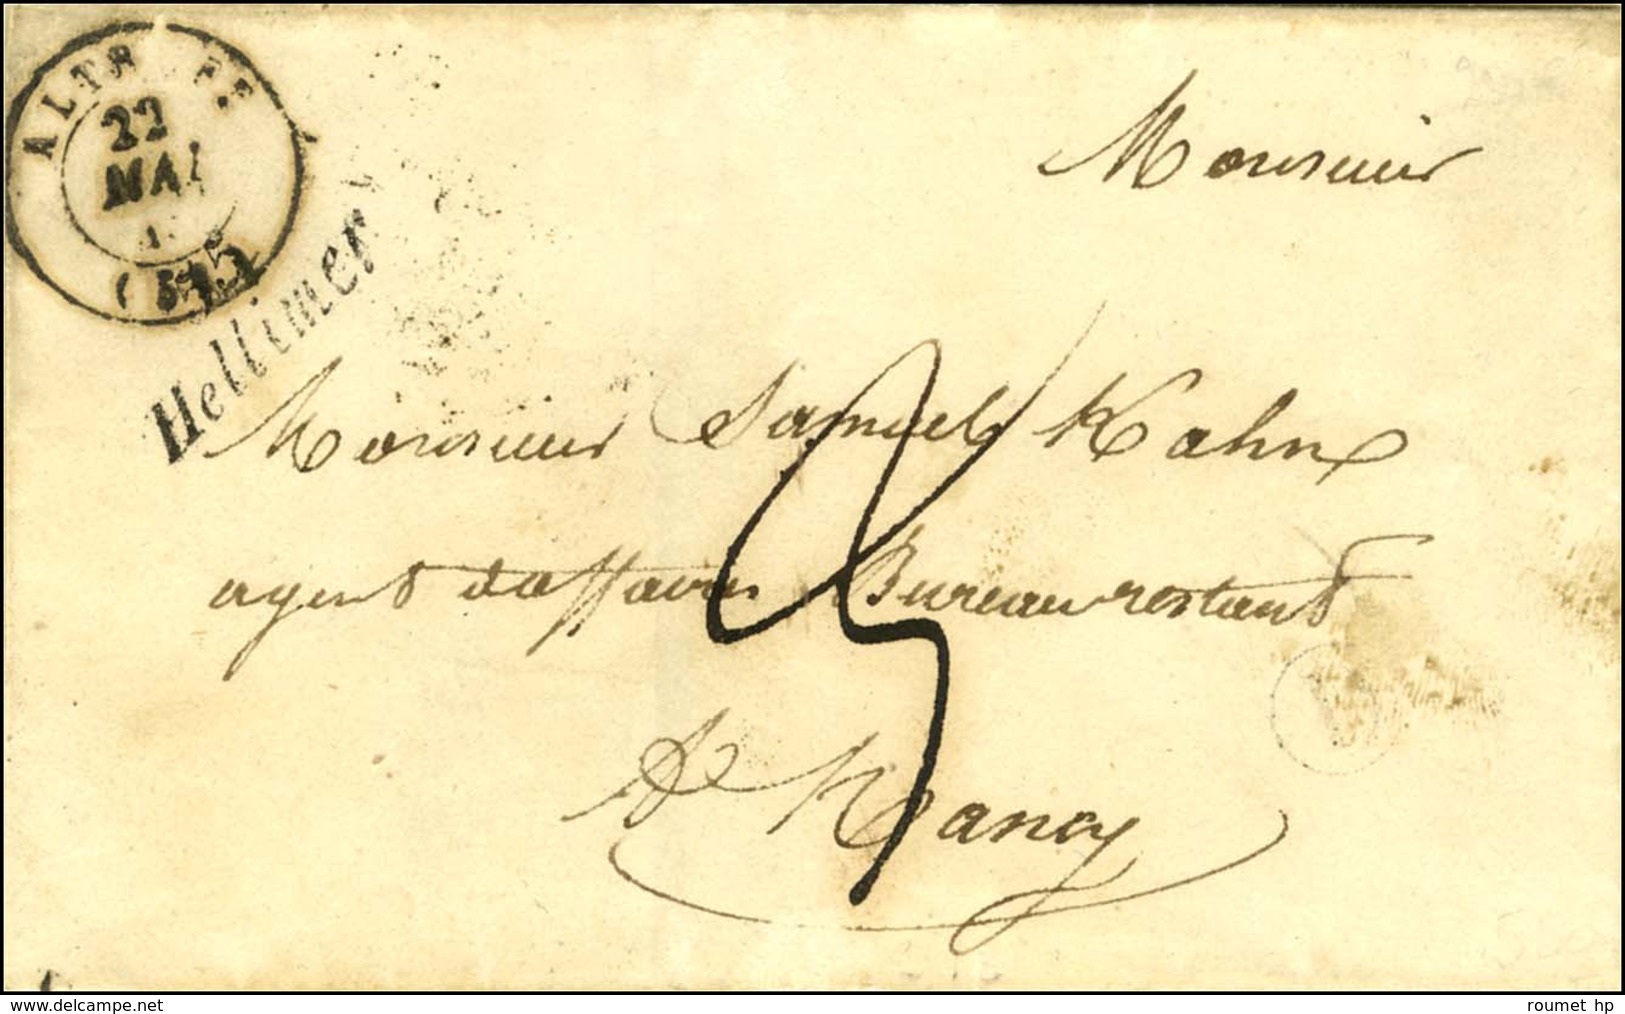 22
MAI
(55)
55
Hellimer
Monsieur
Monsieur Samuel Kahn
agent d'affaires Bureau restant
A Nancy
delcampe.net
roumet hp